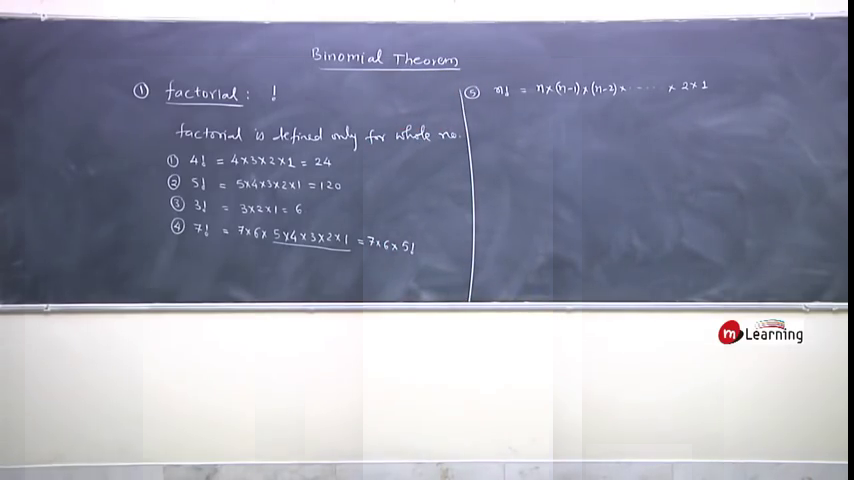 Binomial Theorem
① factorial : !
factorial is defined only for whole no.
① 4! = 4×3×2×1 = 24
② 5! = 5×4×3×2×1 = 120
③ 3! = 3×2×1 = 6
④ 7! = 7×6×5×4×3×2×1 = 7×6×5!
⑤ n! = n×(n-1)×(n-2)×······ × 2×1
m Learning